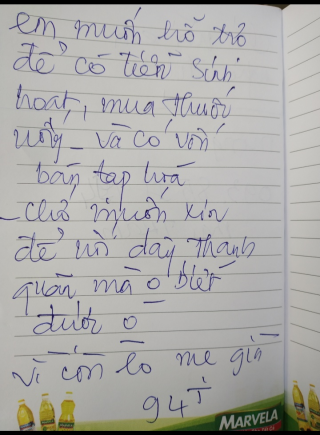 em muốn hỗ trợ
để có tiền sinh
hoạt, mua thuốc
uống - và có vốn
bán tạp hóa
- chớ muốn xin
để nối dây thanh
quản mà o biết
được o
vì còn lo mẹ già
94T
MARVELA